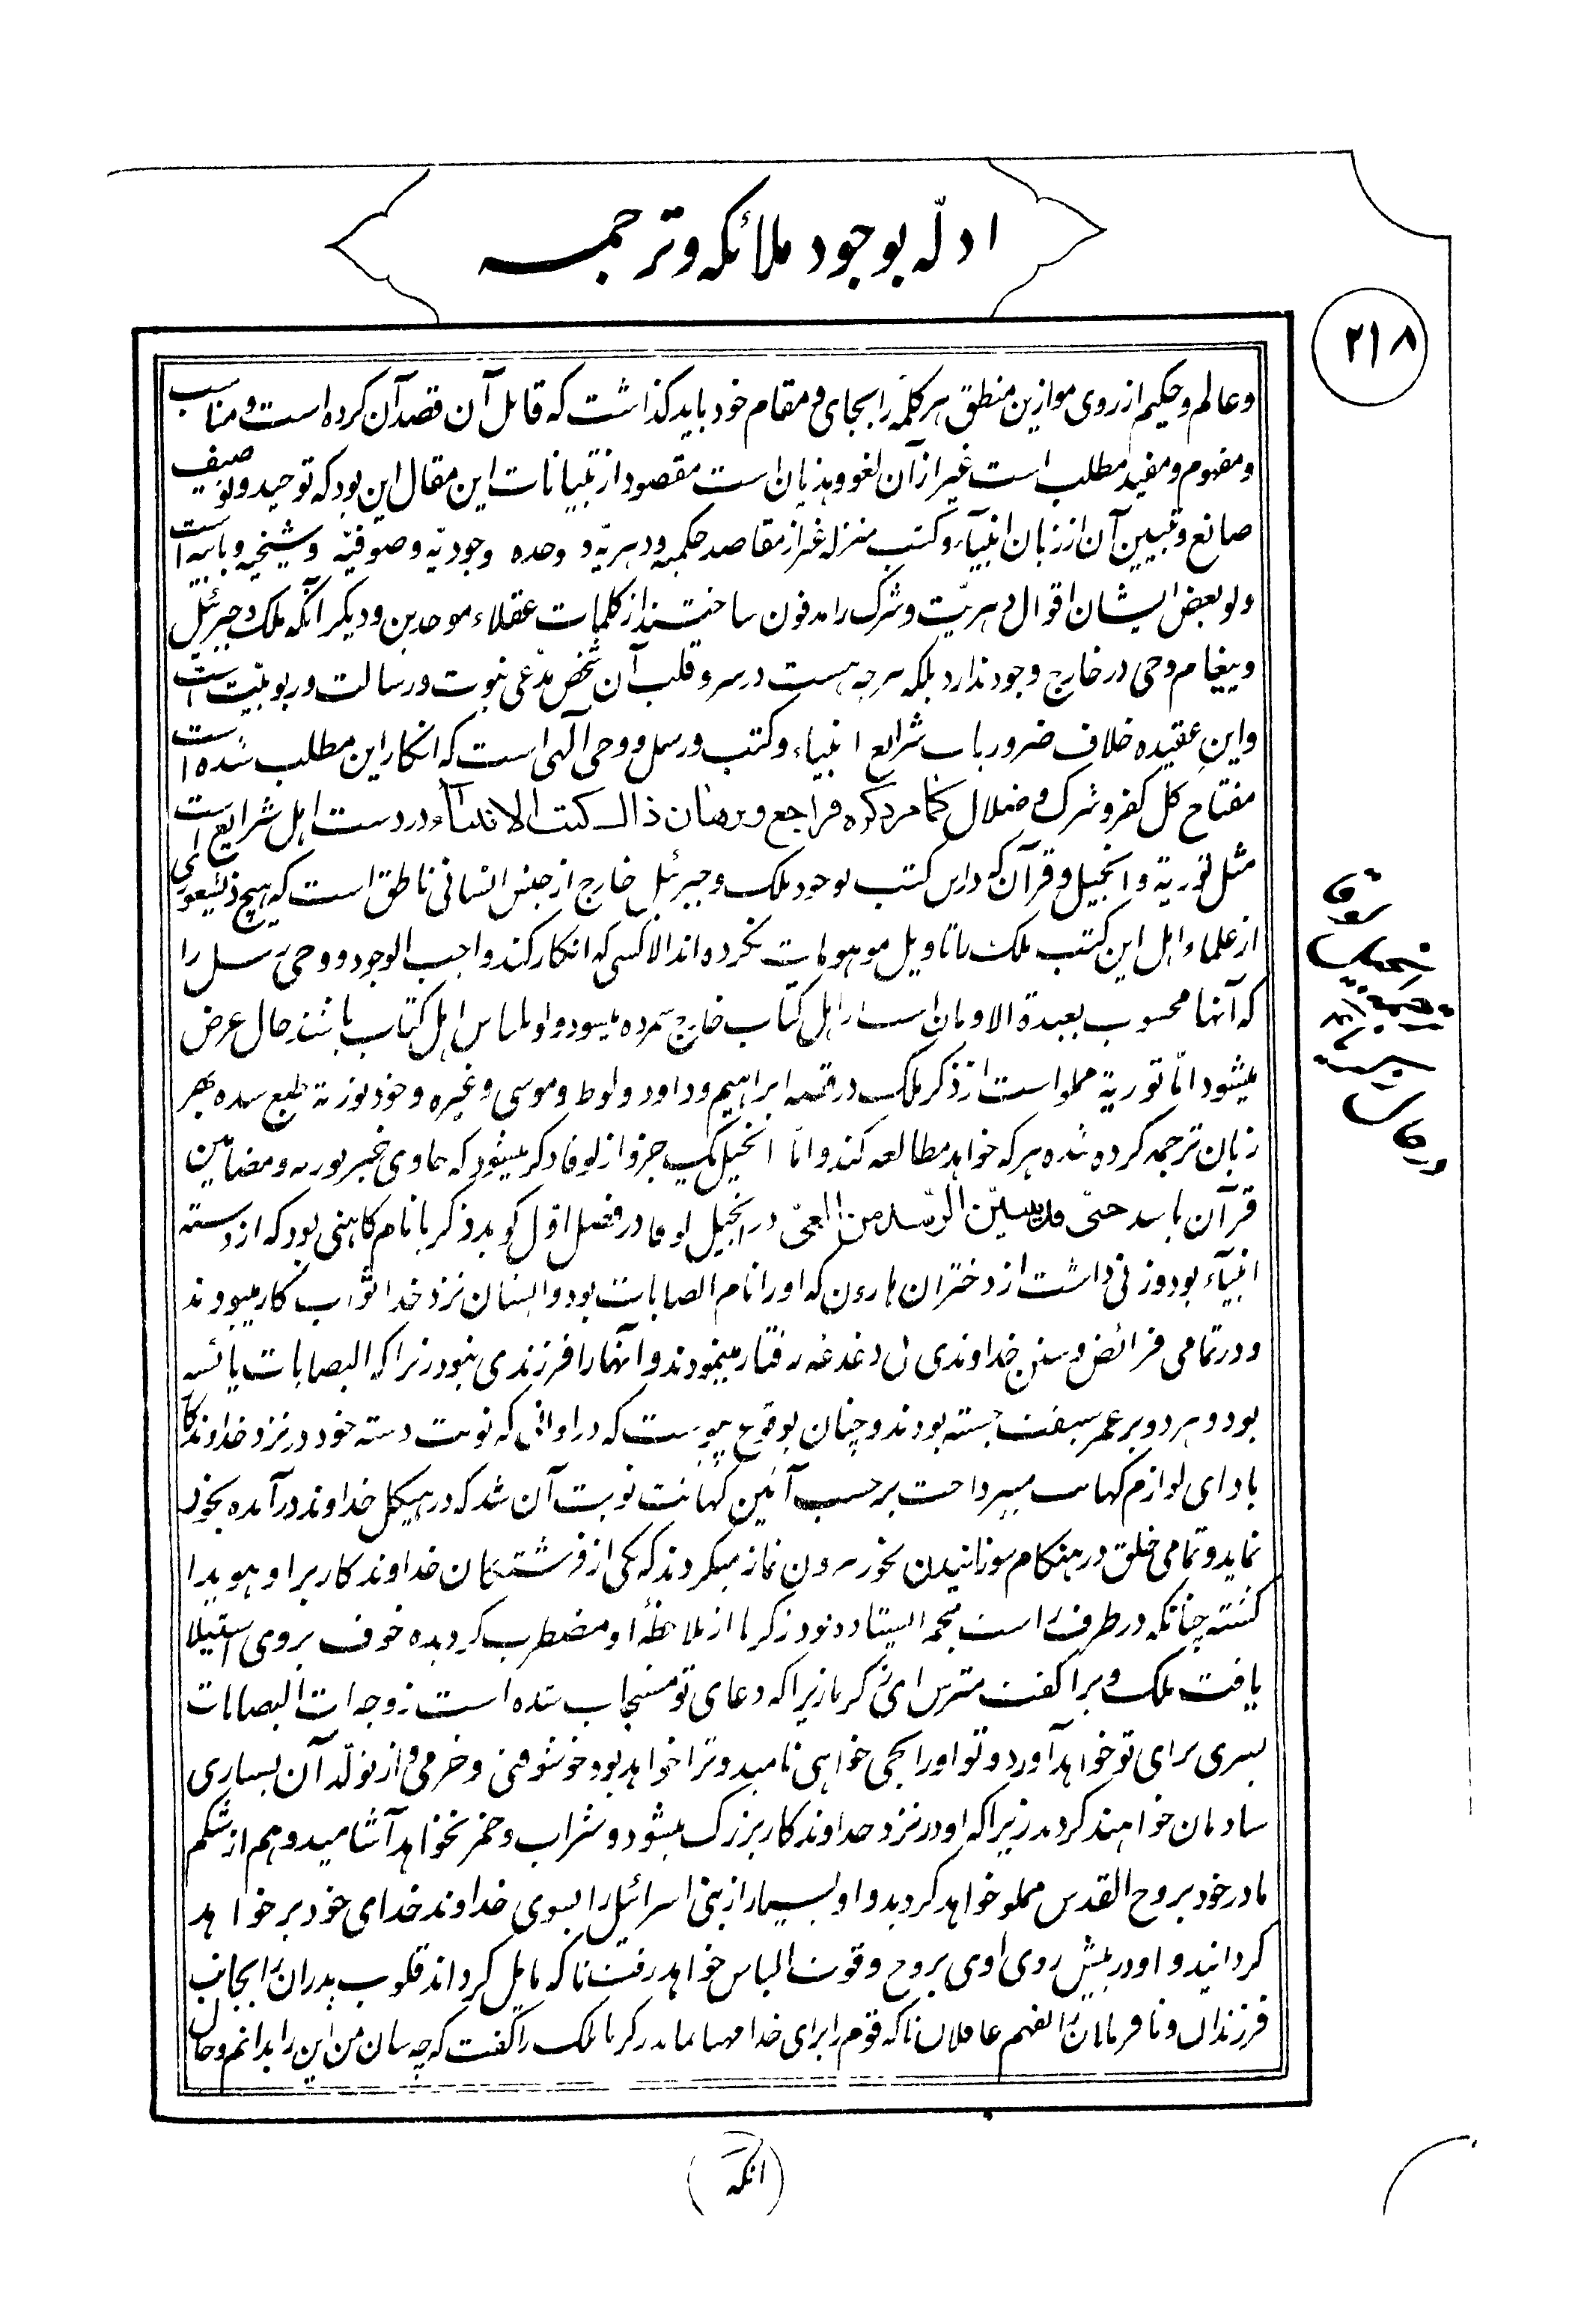 ادلّه بوجود ملائکه و ترجمه
۲۱۸
و عالم و حکیم از روی موازین منطق هر کلمه را بجای و مقام خود باید کذاشت که قائل آن قصد آن کرده است و مناسب
و مفهوم و مفید مطلب است غیر از آن لغو و هذیان است مقصود از تبیانات این مقال این بود که توحید و توصیف
صانع و تبیین آن از زبان انبیآء و کتب منزله غیر از مقاصد حکمیه و دهریّه و وحده وجودیّه و صوفیّه و شیخیه و بابیه است
و لو بعض ایشان اقوال دهریّت و شرک را مدفون ساختند از کلمات عقلاء موحدین و دیکر آنکه ملک و جبرئیل
و پیغام وحی در خارج وجود ندارد بلکه هر چه هست در سر و قلب آن شخص مدّعی نبوت و رسالت و ربوبیّت است
و این عقیده خلاف ضروریات شرایع انبیاء و کتب و رسل و وحی آلهی است که انکار این مطلب شده است
مفتاح کل کفر و شرک و ضلال کما مر ذکره فراجع و برهان ذالک کتب الانبیآء در دست اهل شرایع است
مثل توریة و انجیل و قرآن که در این کتب بوجود ملک و جبرئیل خارج از جنس انسانی ناطق است که هیچ ذیشعوری
از علماء اهل این کتب ملک را تاویل موهومات نکرده اند الا کسی که انکار کند واجب الوجود و وحی رسل را
که آنها محسوب بعبدة الاوثان است از اهل کتاب خارج شمرده میشود و لو لباس اهل کتاب باشند حال عرض
میشود امّا توریة مملو است از ذکر ملک در قصه ابراهیم و داود و لوط و موسی و غیره و خود توریة طبع شده بهر
زبان ترجمه کرده شده هر که خواهد مطالعه کند و امّا انجیل یک جزو از لوقا ذکر میشود که حاوی خبر توریه و مضامین
قرآن باشد حتّی قد یتبیّن الرّشد من الغیّ در انجیل لوقا در فصل اوّل کوید زکریا نام کاهنی بود که از دسته
انبیآء بود و زنی داشت از دختران هارون که او را نام الصابات بود و ایشان نزد خدا ثواب کار میبودند
و در تمامی فرائض و سنن خداوندی بی دغدغه رفتار مینمودند و آنها را فرزندی نبود زیرا که الیصابات یائسه
بود و هر دو بر عمر سبقت جسته بودند و چنان بوقوع پیوست که در اوانی که نوبت دسته خود در نزد خداوند کار
باداى لوازم کهانت میپرداخت بر حسب آئین کهانت نوبت آن شد که در هیکل خداوند در آمده بخور
نماید و تمامی خلق در هنکام سوزانیدن بخور بیرون نماز میکردند که یکی از فرشتکان خداوند کار بر او هویدا
کشته چنانکه در طرف راست مجمر ایستاده بود زکریا از ملاحظهٔ او مضطرب کردیده خوف بروی استیلا
یافت ملک ویرا کفت مترس ای زکریا زیرا که دعای تو مستجاب شده است زوجه ات الیصابات
پسری برای تو خواهد آورد و تو او را یحیی خواهی نامید و ترا خواهد بود خوشوقتی و خرمی و از تولّد آن بسیاری
شادمان خواهند کردید زیرا که او در نزد خداوند کار بزرک میشود و شراب و خمر نخواهد آشامید و هم از شکم
مادر خود بروح القدس مملو خواهد کردید و او بسیار از بنی اسرائیل را بسوی خداوند خدای خود بر خواهد
کردانید و او در پیش روی اوی بروح و قوت الیاس خواهد رفت تا که مایل کرداند قلوب پدران را بجانب
فرزندان و نافرمانان را بفهم عاقلان تا که قوم را برای خدا مهیا نماید زکریا ملک را کفت که چه سان من این را بدانم و حال
(آنکه)
لوقا
انجیل
در حال